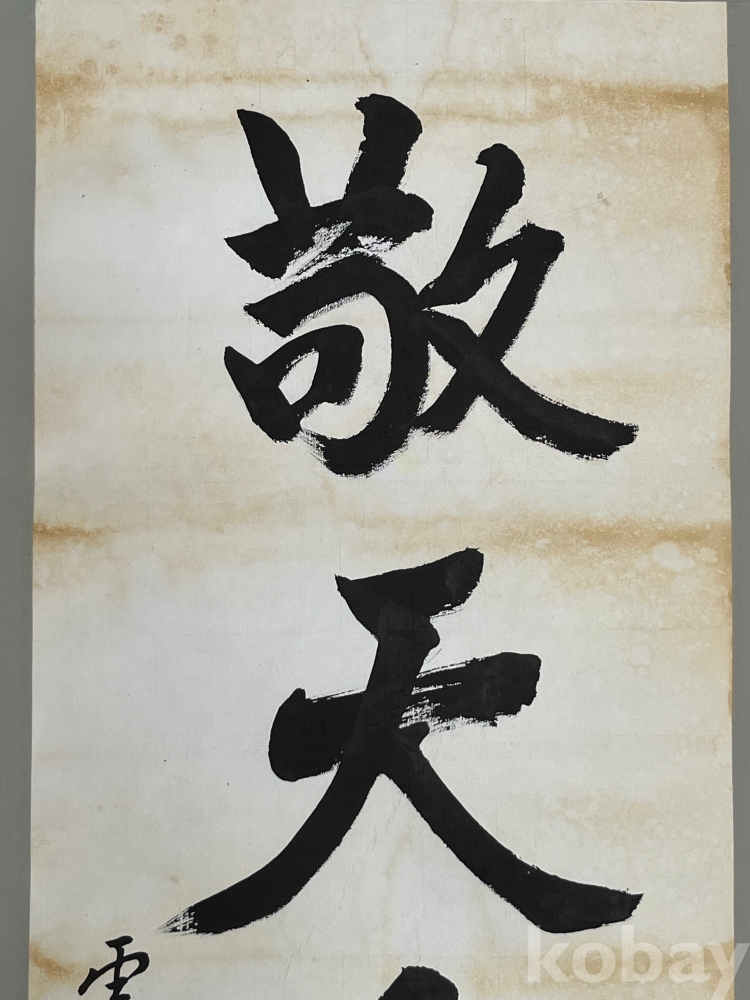 敬天
kobay